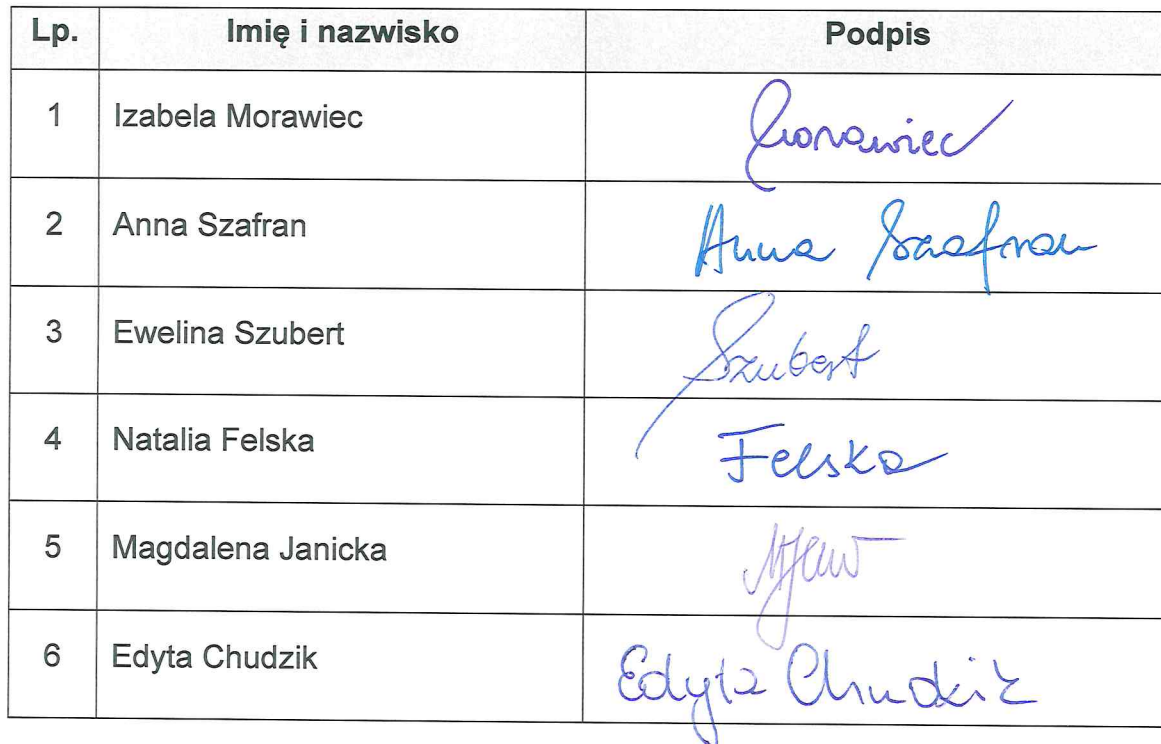 Lp. Imię i nazwisko Podpis
1 Izabela Morawiec Morawiec
2 Anna Szafran Anna Szafran
3 Ewelina Szubert Szubert
4 Natalia Felska Felska
5 Magdalena Janicka
6 Edyta Chudzik Edyta Chudzik